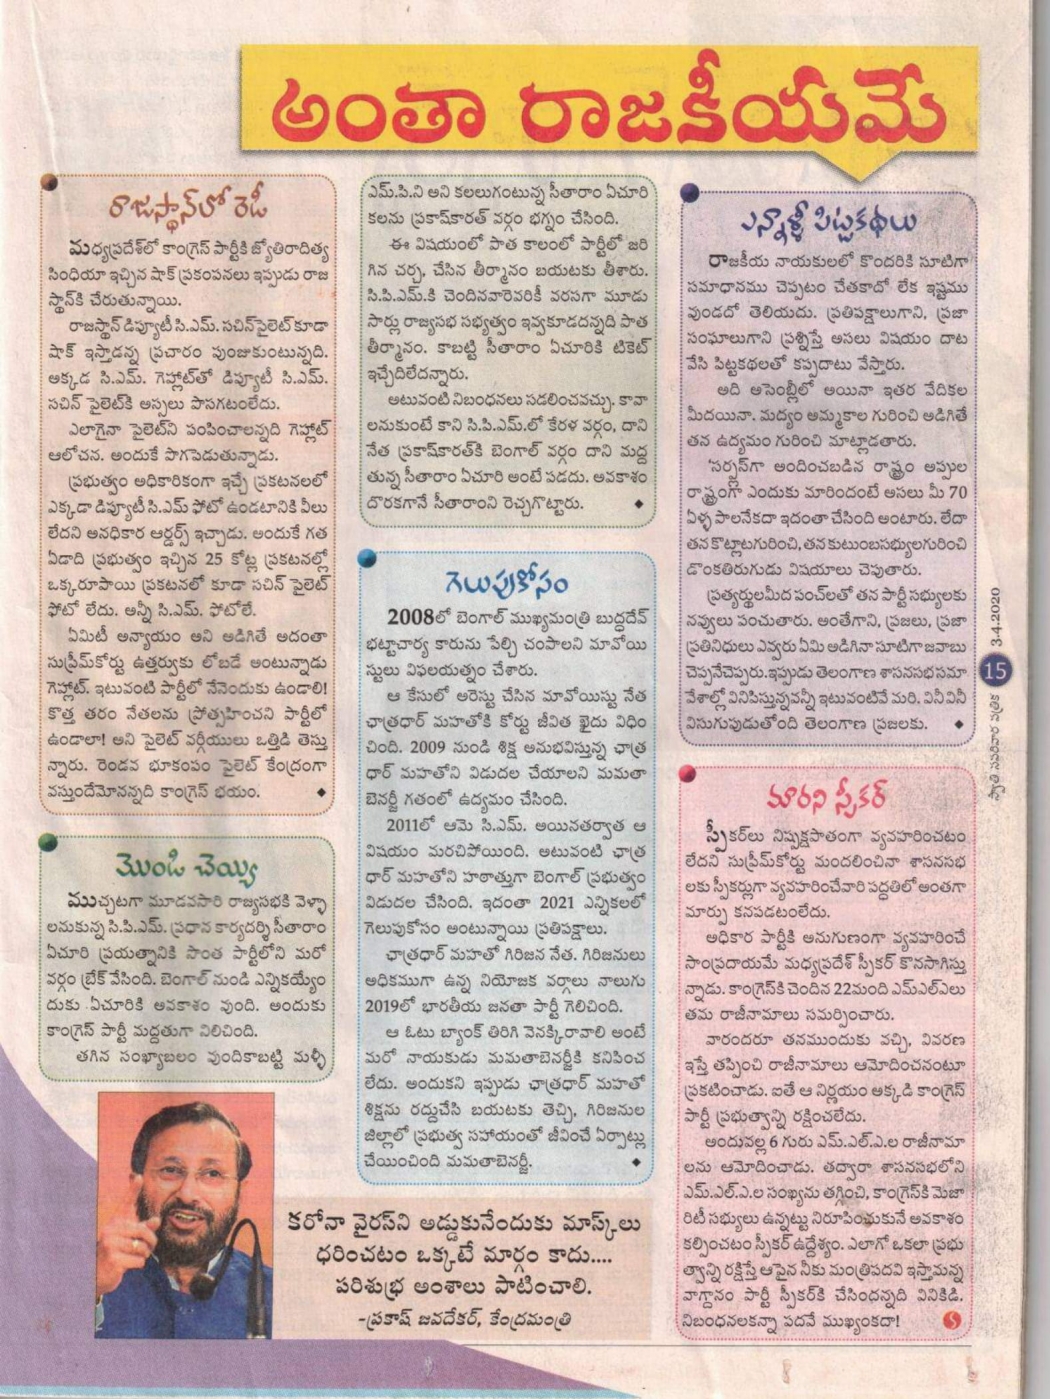 అంతా రాజకీయమే
రాజస్థాన్‌లో రెడీ
మధ్యప్రదేశ్‌లో కాంగ్రెస్ పార్టీకి జ్యోతిరాదిత్య
సింధియా ఇచ్చిన షాక్ ప్రకంపనలు ఇప్పుడు రాజ
స్థాన్‌కి చేరుతున్నాయి.
రాజస్థాన్ డిప్యూటీ సి.ఎమ్. సచిన్‌పైలెట్ కూడా
షాక్ ఇస్తాడన్న ప్రచారం పుంజుకుంటున్నది.
అక్కడ సి.ఎమ్. గెహ్లాట్‌తో డిప్యూటీ సి.ఎమ్.
సచిన్ పైలెట్‌కి అస్సలు పొసగటంలేదు.
ఎలాగైనా పైలెట్‌ని పంపించాలన్నది గెహ్లాట్
ఆలోచన. అందుకే పొగపెడుతున్నాడు.
ప్రభుత్వం అధికారికంగా ఇచ్చే ప్రకటనలలో
ఎక్కడా డిప్యూటీ సి.ఎమ్ ఫోటో ఉండటానికి వీలు
లేదని అనధికార ఆర్డర్స్ ఇచ్చాడు. అందుకే గత
ఏడాది ప్రభుత్వం ఇచ్చిన 25 కోట్ల ప్రకటనల్లో
ఒక్కరూపాయి ప్రకటనలో కూడా సచిన్ పైలెట్
ఫోటో లేదు. అన్నీ సి.ఎమ్. ఫోటోలే.
ఏమిటీ అన్యాయం అని అడిగితే అదంతా
సుప్రీమ్‌కోర్టు ఉత్తర్వుకు లోబడే అంటున్నాడు
గెహ్లాట్. ఇటువంటి పార్టీలో నేనెందుకు ఉండాలి!
కొత్త తరం నేతలను ప్రోత్సహించని పార్టీలో
ఉండాలా! అని పైలెట్ వర్గీయులు ఒత్తిడి తెస్తు
న్నారు. రెండవ భూకంపం పైలెట్ కేంద్రంగా
వస్తుందేమోనన్నది కాంగ్రెస్ భయం. ◆
మొండి చెయ్యి
ముచ్చటగా మూడవసారి రాజ్యసభకి వెళ్ళా
లనుకున్న సి.పి.ఎమ్. ప్రధాన కార్యదర్శి సీతారాం
ఏచూరి ప్రయత్నానికి సొంత పార్టీలోని మరో
వర్గం బ్రేక్ వేసింది. బెంగాల్ నుండి ఎన్నికయ్యేం
దుకు ఏచూరికి అవకాశం వుంది. అందుకు
కాంగ్రెస్ పార్టీ మద్దతుగా నిలిచింది.
తగిన సంఖ్యాబలం వుందికాబట్టి మళ్ళీ
ఎమ్.పి.ని అని కలలుగంటున్న సీతారాం ఏచూరి
కలను ప్రకాష్‌కారత్ వర్గం భగ్నం చేసింది.
ఈ విషయంలో పాత కాలంలో పార్టీలో జరి
గిన చర్చ, చేసిన తీర్మానం బయటకు తీశారు.
సి.పి.ఎమ్.కి చెందినవారెవరికీ వరసగా మూడు
సార్లు రాజ్యసభ సభ్యత్వం ఇవ్వకూడదన్నది పాత
తీర్మానం. కాబట్టి సీతారాం ఏచూరికి టికెట్
ఇచ్చేదిలేదన్నారు.
అటువంటి నిబంధనలు సడలించవచ్చు. కావా
లనుకుంటే కాని సి.పి.ఎమ్.లో కేరళ వర్గం, దాని
నేత ప్రకాష్‌కారత్‌కి బెంగాల్ వర్గం దాని మద్ద
తున్న సీతారాం ఏచూరి అంటే పడదు. అవకాశం
దొరకగానే సీతారాంని రెచ్చగొట్టారు. ◆
గెలుపుకోసం
2008లో బెంగాల్ ముఖ్యమంత్రి బుద్ధదేవ్
భట్టాచార్య కారును పేల్చి చంపాలని మావోయి
స్టులు విఫలయత్నం చేశారు.
ఆ కేసులో అరెస్టు చేసిన మావోయిస్టు నేత
ఛాత్రధార్ మహతోకి కోర్టు జీవిత ఖైదు విధిం
చింది. 2009 నుండి శిక్ష అనుభవిస్తున్న ఛాత్ర
ధార్ మహతోని విడుదల చేయాలని మమతా
బెనర్జీ గతంలో ఉద్యమం చేసింది.
2011లో ఆమె సి.ఎమ్. అయినతర్వాత ఆ
విషయం మరచిపోయింది. అటువంటి ఛాత్ర
ధార్ మహతోని హఠాత్తుగా బెంగాల్ ప్రభుత్వం
విడుదల చేసింది. ఇదంతా 2021 ఎన్నికలలో
గెలుపుకోసం అంటున్నాయి ప్రతిపక్షాలు.
ఛాత్రధార్ మహతో గిరిజన నేత. గిరిజనులు
అధికముగా ఉన్న నియోజక వర్గాలు నాలుగు
2019లో భారతీయ జనతా పార్టీ గెలిచింది.
ఆ ఓటు బ్యాంక్ తిరిగి వెనక్కిరావాలి అంటే
మరో నాయకుడు మమతాబెనర్జీకి కనిపించ
లేదు. అందుకని ఇప్పుడు ఛాత్రధార్ మహతో
శిక్షను రద్దుచేసి బయటకు తెచ్చి, గిరిజనుల
జిల్లాలో ప్రభుత్వ సహాయంతో జీవించే ఏర్పాట్లు
చేయించింది మమతాబెనర్జీ. ◆
కరోనా వైరస్‌ని అడ్డుకునేందుకు మాస్క్‌లు
ధరించటం ఒక్కటే మార్గం కాదు....
పరిశుభ్ర అంశాలు పాటించాలి.
-ప్రకాష్ జవదేకర్, కేంద్రమంత్రి
ఎన్నాళ్ళీ పిట్టకథలు
రాజకీయ నాయకులలో కొందరికి సూటిగా
సమాధానము చెప్పటం చేతకాదో లేక ఇష్టము
వుండదో తెలియదు. ప్రతిపక్షాలుగాని, ప్రజా
సంఘాలుగాని ప్రశ్నిస్తే అసలు విషయం దాట
వేసి పిట్టకథలతో కప్పదాటు వేస్తారు.
అది అసెంబ్లీలో అయినా ఇతర వేదికల
మీదయినా. మద్యం అమ్మకాల గురించి అడిగితే
తన ఉద్యమం గురించి మాట్లాడతారు.
'సర్ప్లస్‌గా అందించబడిన రాష్ట్రం అప్పుల
రాష్ట్రంగా ఎందుకు మారిందంటే అసలు మీ 70
ఏళ్ళ పాలనేకదా ఇదంతా చేసింది అంటారు. లేదా
తన కొట్లాటగురించి, తన కుటుంబసభ్యులగురించి
డొంకతిరుగుడు విషయాలు చెపుతారు.
ప్రత్యర్థులమీద పంచ్‌లతో తన పార్టీ సభ్యులకు
నవ్వులు పంచుతారు. అంతేగాని, ప్రజలు, ప్రజా
ప్రతినిధులు ఎవ్వరు ఏమి అడిగినా సూటిగా జవాబు
చెప్పనేచెప్పరు.ఇప్పుడు తెలంగాణ శాసనసభ సమా
వేశాల్లో వినిపిస్తున్నవన్నీ ఇటువంటివే మరి. వినీ వినీ
విసుగుపుడుతోంది తెలంగాణ ప్రజలకు. ◆
మారని స్పీకర్
స్పీకర్‌లు నిష్పక్షపాతంగా వ్యవహరించటం
లేదని సుప్రీమ్‌కోర్టు మందలించినా శాసనసభ
లకు స్పీకర్లుగా వ్యవహరించేవారి పద్ధతిలో అంతగా
మార్పు కనపడటంలేదు.
అధికార పార్టీకి అనుగుణంగా వ్యవహరించే
సాంప్రదాయమే మధ్యప్రదేశ్ స్పీకర్ కొనసాగిస్తు
న్నాడు. కాంగ్రెస్‌కి చెందిన 22మంది ఎమ్ఎల్ఏలు
తమ రాజీనామాలు సమర్పించారు.
వారందరూ తనముందుకు వచ్చి, వివరణ
ఇస్తే తప్పించి రాజీనామాలు ఆమోదించనంటూ
ప్రకటించాడు. ఐతే ఆ నిర్ణయం అక్కడి కాంగ్రెస్
పార్టీ ప్రభుత్వాన్ని రక్షించలేదు.
అందువల్ల 6 గురు ఎమ్.ఎల్.ఎ.ల రాజీనామా
లను ఆమోదించాడు. తద్వారా శాసనసభలోని
ఎమ్.ఎల్.ఎ.ల సంఖ్యను తగ్గించి, కాంగ్రెస్‌కి మెజా
రిటీ సభ్యులు ఉన్నట్టు నిరూపించుకునే అవకాశం
కల్పించటం స్పీకర్ ఉద్దేశ్యం. ఎలాగో ఒకలా ప్రభు
త్వాన్ని రక్షిస్తే ఆపైన నీకు మంత్రిపదవి ఇస్తామన్న
వాగ్దానం పార్టీ స్పీకర్‌కి చేసిందన్నది వినికిడి.
నిబంధనలకన్నా పదవే ముఖ్యంకదా!
స్వాతి సపరివార పత్రిక 15 3.4.2020